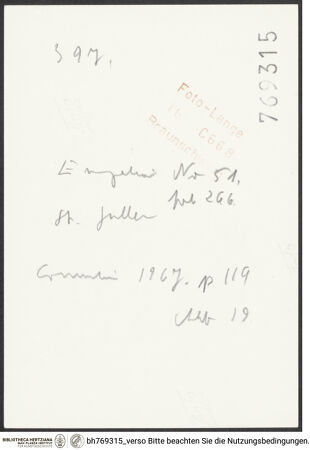 397.
769315
Foto-Lange
C668
No 51,
St. Gallen fol 266.
1967. p 119
Abb 19
BIBLIOTHECA HERTZIANA
MAX-PLANCK-INSTITUT
FÜR KUNSTGESCHICHTE
bh769315_verso Bitte beachten Sie die Nutzungsbedingungen.